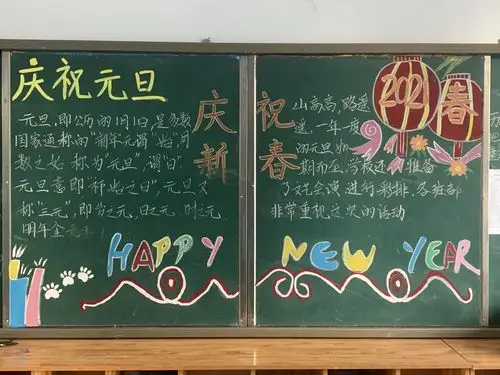 庆祝元旦
元旦,即公历的1月1日,是多数
国家通称的"新年元谓"始"月
数之始 称为"元旦",谓"日"
元旦意即"初始之日",元旦又
称"三元",即岁之元,日之元,时之元,
明年
庆祝
新春
山高高,路遥
遥,一年一度
的元旦如
期而至,学校还准备
了文艺会演,进行彩排,各班都
非常重视这次的活动
2021
春
HAPPY NEW YEAR